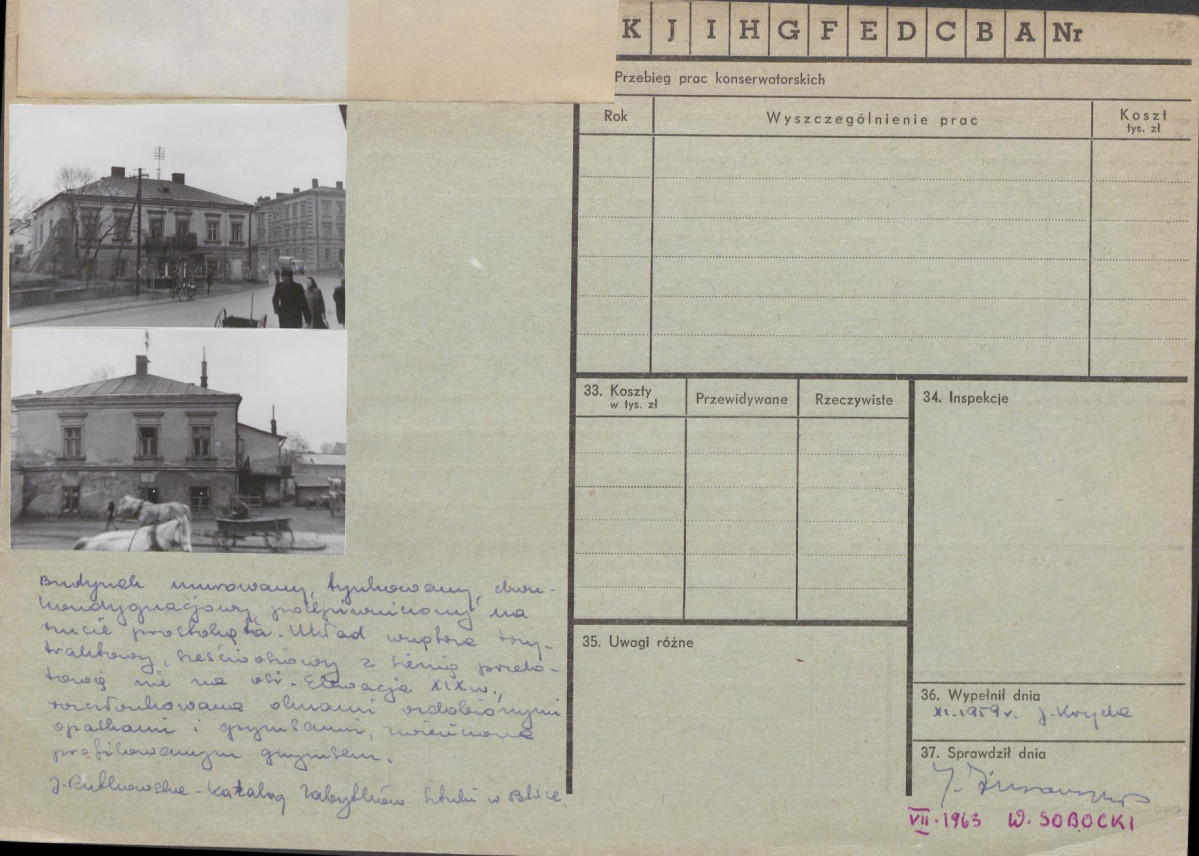 K J I H G F E D C B A Nr
Przebieg prac konserwatorskich
Rok Wyszczególnienie prac Koszt
tys. zł
33. Koszty
w tys. zł
Przewidywane Rzeczywiste
34. Inspekcje
35. Uwagi różne
36. Wypełnił dnia
XI.1959 r. J. Kryda
37. Sprawdził dnia
VII.1963 W. SOBOCKI
Budynek murowany, tynkowany, dwu-
kondygnacjowy, podpiwniczony, na
rzucie prostokąta. Układ wnętrza trzy-
traktowy, sześcioosiowy z sienią przelo-
tową nie na osi. Elewacja XIX w.,
rozczłonkowana oknami ozdobionymi
opaskami i gzymsami, zwieńczona
profilowanym gzymsem.
J. Rutkowska - Katalog Zabytków Sztuki w Polsce.